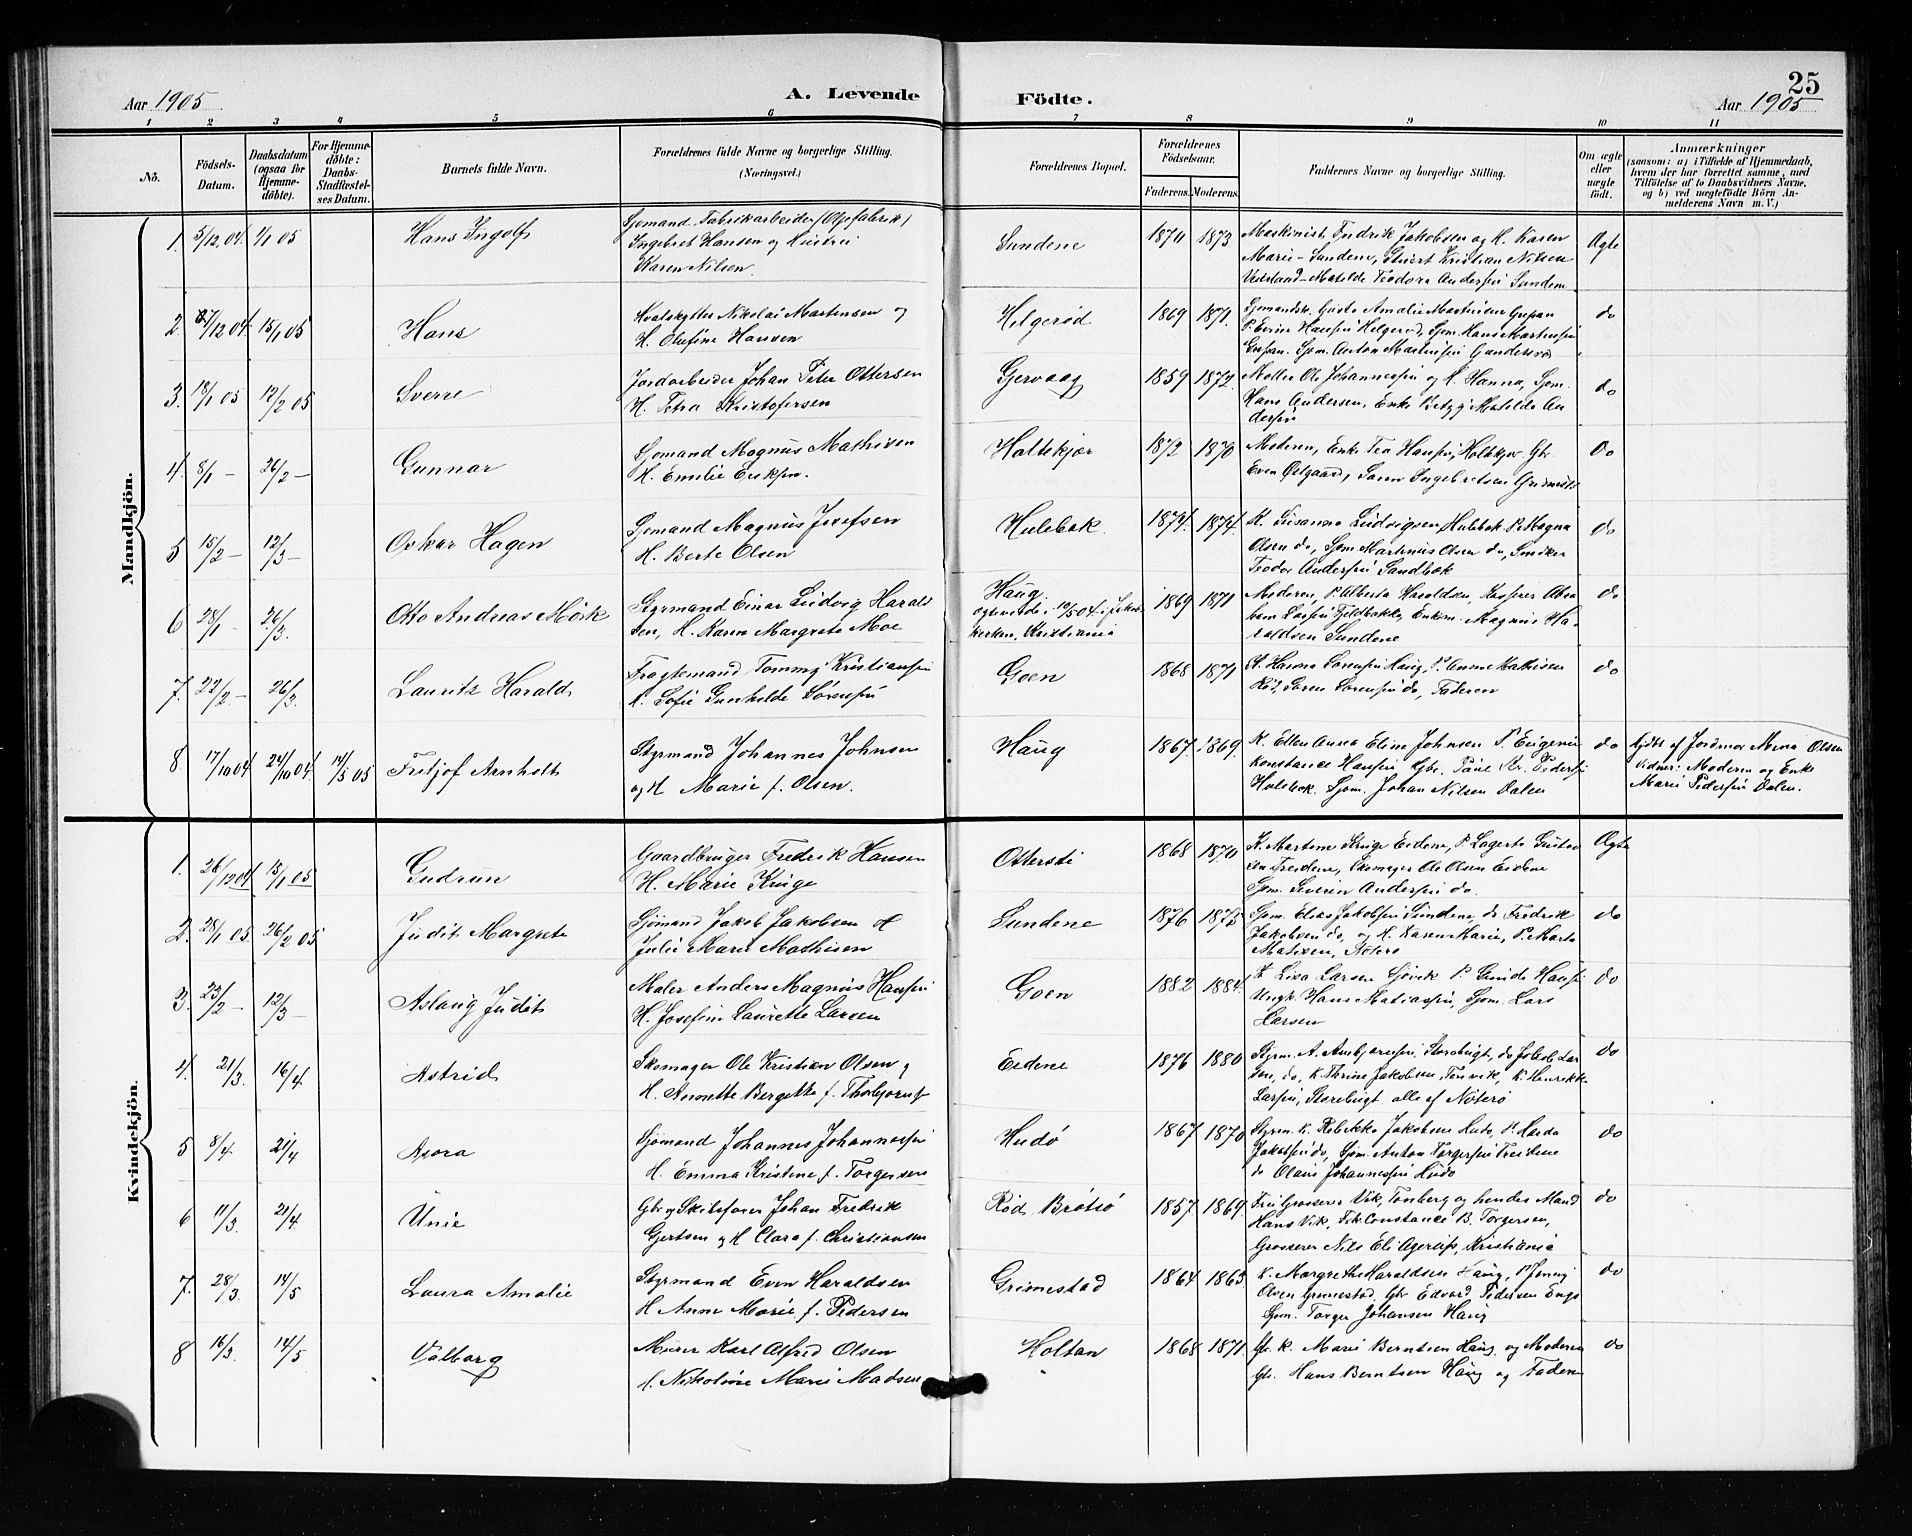 Aar 1905
A. Levende Födte.
25
Aar 1905
1 2 3 4 5 6 7 8 9 10 11
No.
Födsels-Datum.
Daabsdatum (ogsaa for Hjemmedöbte).
For Hjemmedöbte: Daabs-Stadfæstelses Datum.
Barnets fulde Navn.
Forældrenes fulde Navne og borgerlige Stilling. (Næringsvei.)
Forældrenes Bopæl.
Forældrenes Födselsaar.
Faderens. Moderens.
Faddernes Navne og borgerlige Stilling.
Om ægte eller uægte födt.
Anmærkninger
(saasom: a) i Tilfælde af Hjemmedaab, hvem der har forrettet samme, med Tilföielse af to Daabsvidners Navne, og b) ved uægtefödte Börn Anmelderens Navn m. V.)
Mandkjön.
1. 5/12 04 1/1 05 Hans Ingolf
Sjømand, Fabrikarbeider (Oljefabrik)
Ingebret Hansen og Hustru
Karen Nilsen.
Sundene 1870 1873
Maskinist Fredrik Jakobsen og H. Karen
Marie Sundene, Kristian Nilsen
Matilde Teodora Andersen Sundene
Ægte
2. 27/12 04 15/1 05 Hans
Hvalskytter Nikolai Martensen og
H. Olefine Hansen
Helgerød 1869 1871.
Gusta Amalie
P. Evine Hansen Helgerød, Sjøm. Hans Martinsen
Sjøm. Anton Martinsen
do
3. 18/1 05 12/2 05 Sverre
Jordarbeider Johan Peter Ottersen
H. Petra Kristofersen
Gervaag 1859 1872.
Møller Ole Johannessen og H. Hanna, Sjøm.
Hans Andersen, Enke Matilde An
dersen
do
4. 8/1 – 26/2 – Gunnar
Sjømand Magnus Mathisen
H. Emilie Eriksen.
Holtekjær 1872 1870
Moderen, Enke Tea Hansen, Holtekjær Gbr.
Even Østgaard, Søren Ingebretsen Grimestad
do
5 15/2 – 12/3 – Oskar Hagen
Sjømand Magnus Josefsen
H. Berte Olsen
Hulebak 1874. 1874.
K. Susanna Ludvigsen Hulebak P. Magna
Olsen do, Sjøm. Martinius Olsen do, Snedker
Teodor Andersen Sandbæk
do
6 28/1 – 26/3. Otto Andreas Mörk
Styrmand Einar Ludvig Harald
sen, H. Karen Margrete Moe
Haug.
ægteviede i 1904 i Jakobs
kirken, Kristiania
1869 1871
Moderen, P. Alberta Haraldsen, Abra
ham Larsen Fjeldbakke, Enkem. Magnus Ha
raldsen Sundene
do
7. 22/2 – 26/3. Lauritz Harald
Fragtemand Tommy Kristiansen
H. Sofie Gunhilde Sörensen
Goen 1868 1871
K. Hanna Sørensen Haug, P. Anna Mathisen
Rød, Søren Sørensen do, Faderen
do
8 17/10 04 24/10 04 14/5 05 Fritjof Arnholt
Styrmand Johannes Johnsen
og H Marie f. Olsen.
Haug 1867. 1869.
K. Ellen Anna Eline Johnsen P. Eugenie
Konstance Hansen Gbr. Paul Kr. Pedersen
Holebak. Sjøm. Johan Nilsen Dalen
do
Hjdbt af Jordmor Mina Olsen
Vidner: Moderen og Enke
Marie Pedersen Dalen.
Kvindekjön.
1. 26/12 04 15/1 05 Gudrun
Gaardbruger Fredrik Hansen
H. Marie Kruge
Ottersti 1868 1870
K. Martine Kruge Eidene, P. Lagerta Gustav
sen Treidene, Skomager Ole Olsen Eidene
Sjøm. Severin Andersen do.
Ægte
2. 28/1 05 26/2 05 Judit Margrete
Sjømand Jakob Jakobsen H
Julie Marie Mathisen
Sundene 1876 1875
Sjøm. Elias Jakobsen Sundene, do Fredrik
Jakobsen do, og H. Karen Marie, P. Marta
Matisen, Nøterø
do
3. 23/2 – 12/3 – Aslaug Judit
Maler Anders Magnus Hansen
H. Josefine Laurette Larsen
Goen 1882 1884.
K Lisa Larsen Sjøvik P. Gunda Hansen
Ungk. Hans Matiassen, Sjøm. Lars
Larsen
do
4. 21/3. 16/4. Astrid
Skomager Ole Kristian Olsen og
H. Annette Bergitte f. Thorbjørnsen
Eidene 1876 1880
Styrm. A. Ambjørnsen, Storebugt, do Jakob Lar
sen, do, K. Thrine Jakobsen, Tenvik, K. Henrikke
Larsen, Storebugt alle af Nøterø
do
5 8/4 21/4 Asora
Sjømand Johannes Johannessen
H. Emma Kristine f. Torgersen
Hudö 1867 1870
Styrm. K. Rebekka Jakobsen Hudö, P. Harda
Jakobsen do, Sjøm. Anton Torgersen Treidene
do Olaus Johannessen Hudö
do
6 11/3. 21/4 Unie
Gbr og Skibsfører Johan Fredrik
Gjertsen og H Clara f. Christiansen
Rød Brøtsø 1857 1869.
Fru Grosserer Vik, Tønsberg og hendes Mand
Hans Vik, Frk. Constance B. Torgersen,
Grosserer Nils Eli Agerup, Kristiania
do
7. 28/3. 14/5 Laura Amalie
Styrmand Even Haraldsen
H Anne Marie f. Pedersen
Grimestad 1864 1863
K. Margrethe Haraldsen Haug, P. Jenny
Olsen Grimestad, Gbr Edvard Pedersen Engø
Sjøm. Torger Johansen Haug
do
8 16/3. 14/5 Valborg
Murer Karl Alfred Olsen
H. Nikoline Marie Madsen
Holtan 1868 1871.
Gbr. K. Marie Berntsen Haug og Moderen
Gbr. Hans Berntsen Haug og Faderen
do